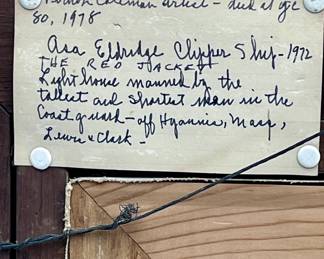 Vernon Coleman artist - died at age
80, 1978
Asa Eldridge Clipper Ship - 1972
THE RED JACKET
Lighthouse manned by the
tallest and shortest man in the
Coast guard - off Hyannis, Mass,
Lewis & Clark -